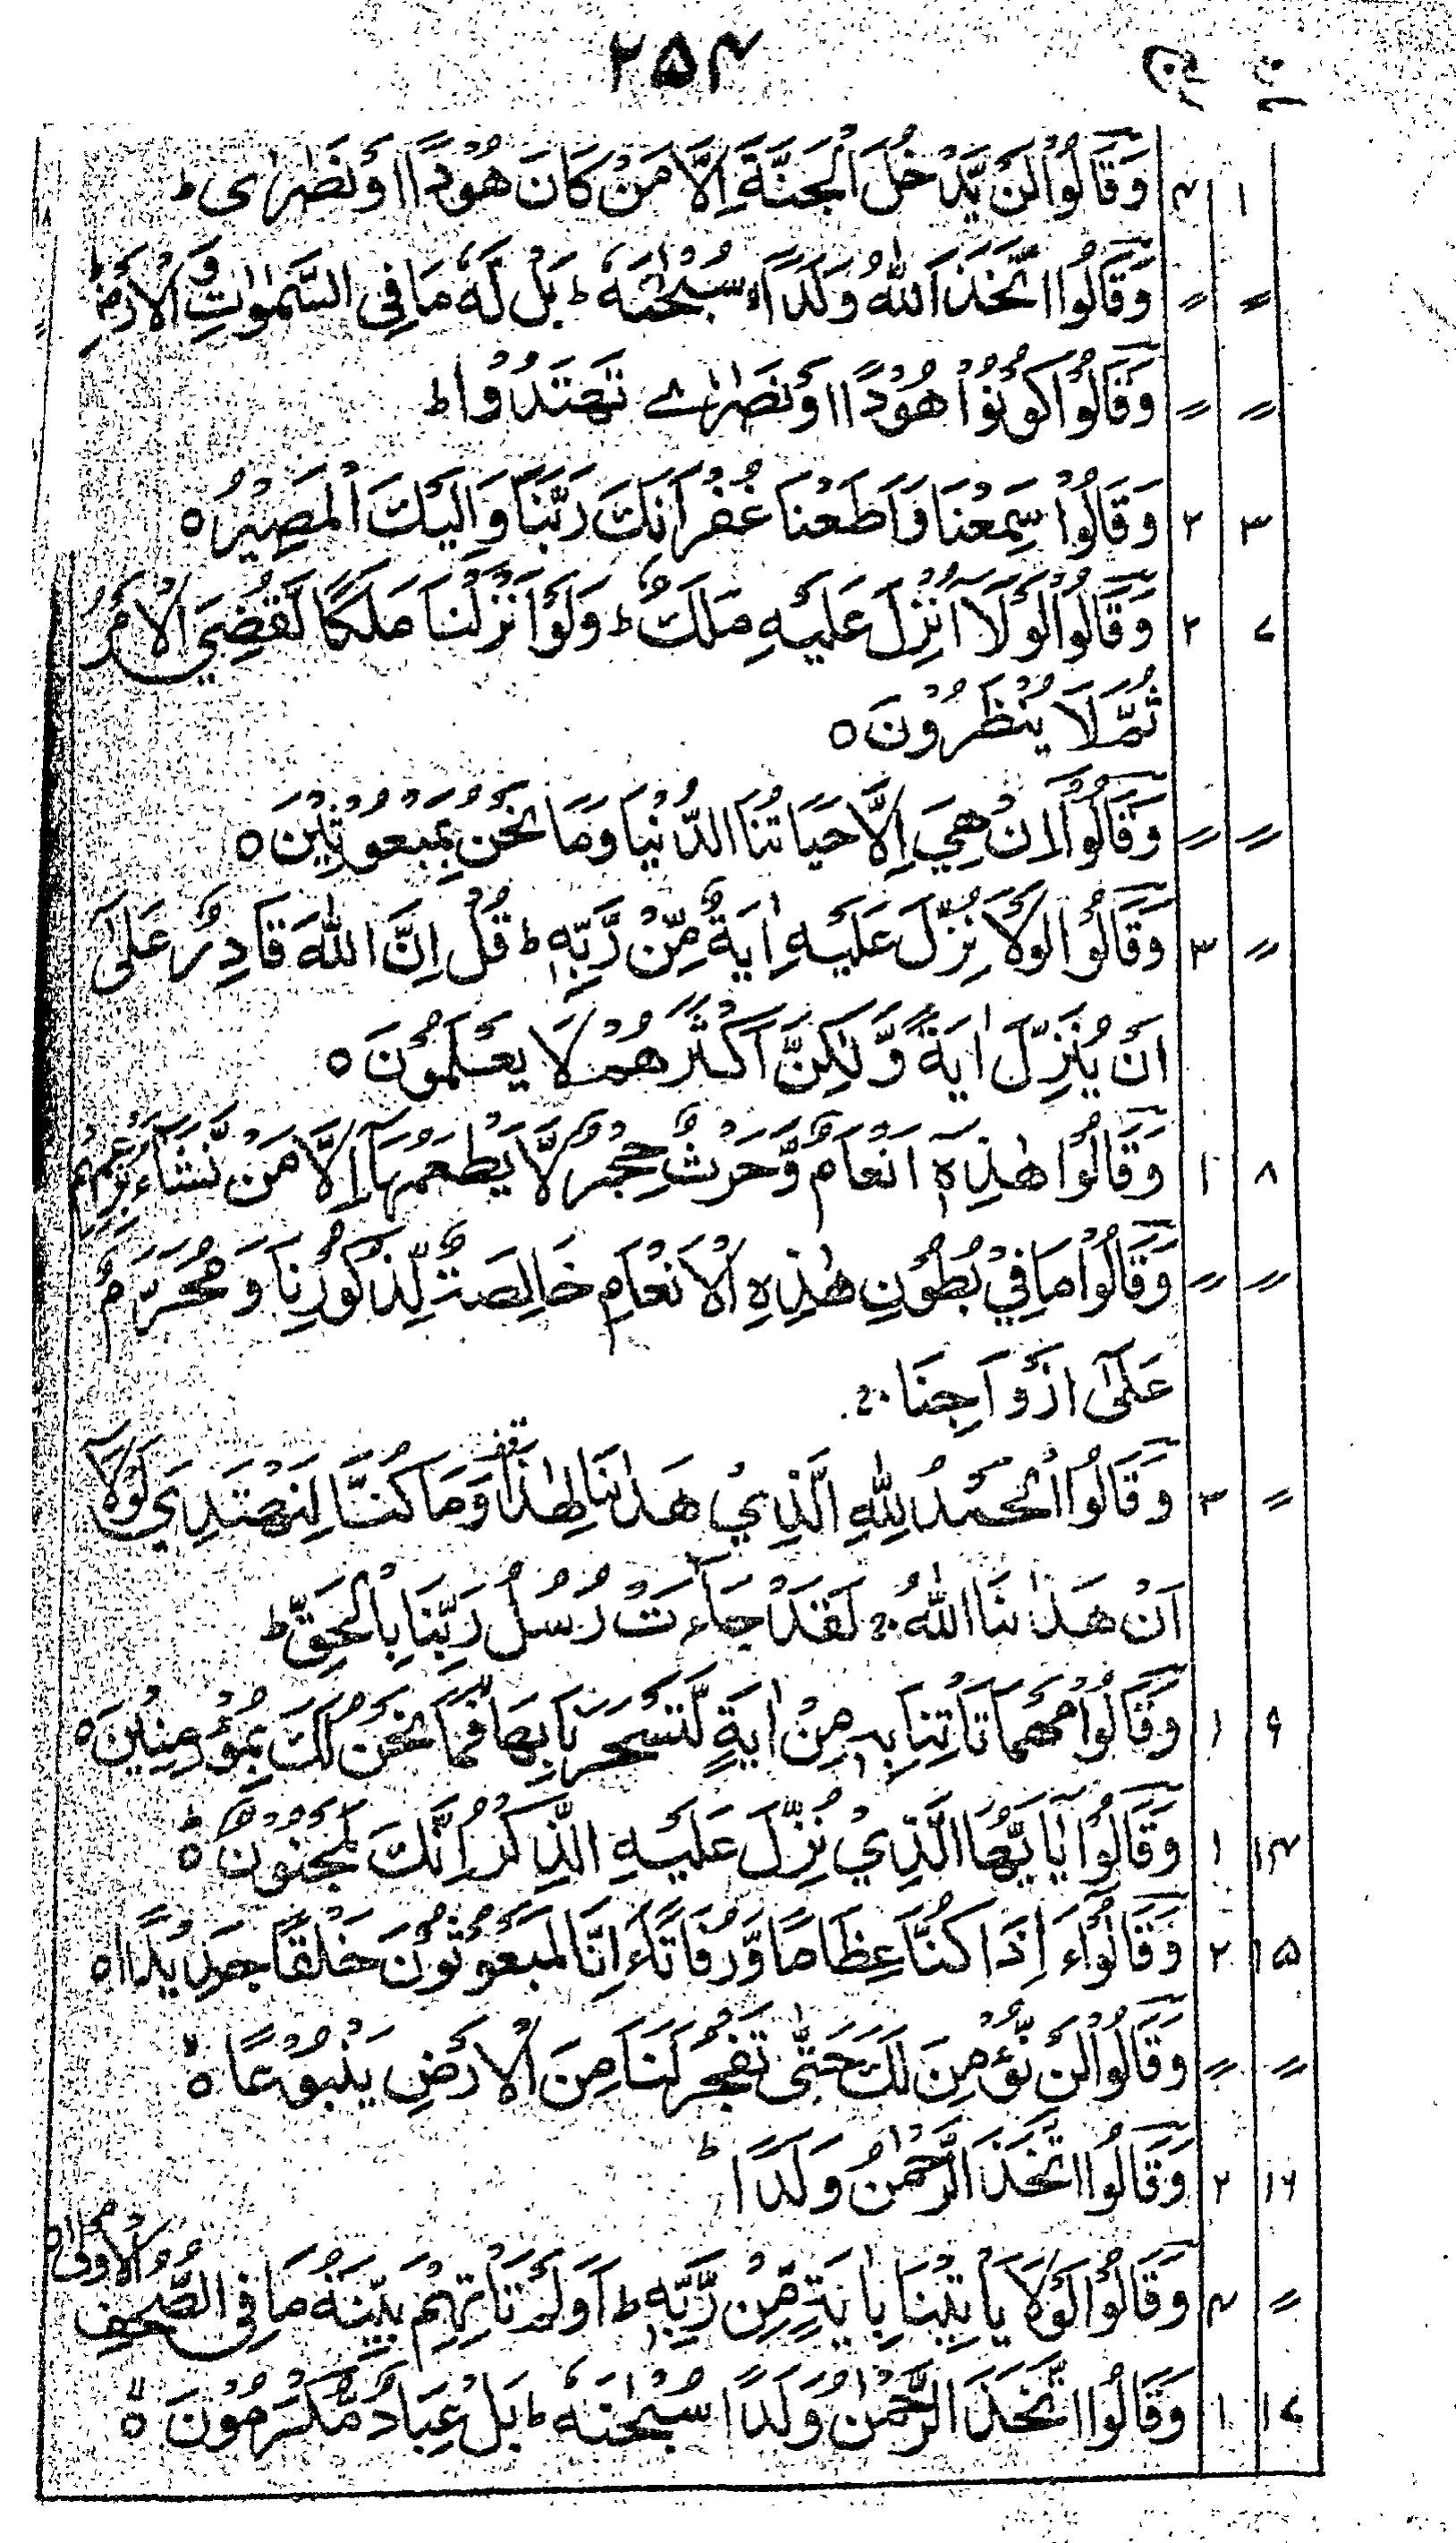 ۲۵۴
۱ ۴ وَقَالُوْا لَنْ يَّدْخُلَ الْجَنَّةَ اِلَّا مَنْ كَانَ هُوْدًا اَوْ نَصٰرٰى ط
〃 〃 وَقَالُوا اتَّخَذَ اللّٰهُ وَلَدًا سُبْحٰنَهٗ ط بَلْ لَّهٗ مَا فِى السَّمٰوٰتِ وَالْاَرْضِ ط
〃 〃 وَقَالُوْا كُوْنُوْا هُوْدًا اَوْ نَصٰرٰے تَهْتَدُوْا ط
۳ ۲ وَقَالُوْا سَمِعْنَا وَاَطَعْنَا غُفْرَانَكَ رَبَّنَا وَاِلَيْكَ الْمَصِيْرُ ه
۷ ۲ وَقَالُوْا لَوْلَآ اُنْزِلَ عَلَيْهِ مَلَكٌ ط وَلَوْ اَنْزَلْنَا مَلَكًا لَقُضِيَ الْاَمْرُ
ثُمَّ لَا يُنْظَرُوْنَ ه
〃 〃 وَقَالُوْٓا اِنْ هِيَ اِلَّا حَيَاتُنَا الدُّنْيَا وَمَا نَحْنُ بِمَبْعُوْثِيْنَ ه
〃 ۳ وَقَالُوْا لَوْلَا نُزِّلَ عَلَيْهِ اٰيَةٌ مِّنْ رَّبِّهٖ ط قُلْ اِنَّ اللّٰهَ قَادِرٌ عَلٰٓى
اَنْ يُنَزِّلَ اٰيَةً وَّلٰكِنَّ اَكْثَرَهُمْ لَا يَعْلَمُوْنَ ه
۸ ۱ وَقَالُوْا هٰذِهٖٓ اَنْعَامٌ وَّحَرْثٌ حِجْرٌ لَّا يَطْعَمُهَآ اِلَّا مَنْ نَّشَآءُ بِزَعْمِهِمْ
〃 〃 وَقَالُوْا مَا فِيْ بُطُوْنِ هٰذِهِ الْاَنْعَامِ خَالِصَةٌ لِّذُكُوْرِنَا وَمُحَرَّمٌ
عَلٰٓى اَزْوَاجِنَا ج
〃 ۳ وَقَالُوا الْحَمْدُ لِلّٰهِ الَّذِيْ هَدٰىنَا لِهٰذَا وَمَا كُنَّا لِنَهْتَدِيَ لَوْلَآ
اَنْ هَدٰىنَا اللّٰهُ ج لَقَدْ جَآءَتْ رُسُلُ رَبِّنَا بِالْحَقِّ ط
۹ ۱ وَقَالُوْا مَهْمَا تَاْتِنَا بِهٖ مِنْ اٰيَةٍ لِّتَسْحَرَنَا بِهَا فَمَا نَحْنُ لَكَ بِمُؤْمِنِيْنَ ه
۱۴ ۱ وَقَالُوْا يٰٓاَيُّهَا الَّذِيْ نُزِّلَ عَلَيْهِ الذِّكْرُ اِنَّكَ لَمَجْنُوْنٌ ه ط
۱۵ ۲ وَقَالُوْٓا ءَاِذَا كُنَّا عِظَامًا وَّرُفَاتًا ءَاِنَّا لَمَبْعُوْثُوْنَ خَلْقًا جَدِيْدًا ه
〃 〃 وَقَالُوْا لَنْ نُّؤْمِنَ لَكَ حَتّٰى تَفْجُرَ لَنَا مِنَ الْاَرْضِ يَنْۢبُوْعًا ه
۱۶ ۲ وَقَالُوا اتَّخَذَ الرَّحْمٰنُ وَلَدًا ط
〃 ۴ وَقَالُوْا لَوْلَا يَاْتِيْنَا بِاٰيَةٍ مِّنْ رَّبِّهٖ ط اَوَلَمْ تَاْتِهِمْ بَيِّنَةُ مَا فِى الصُّحُفِ الْاُوْلٰى ه
۱۷ ۱ وَقَالُوا اتَّخَذَ الرَّحْمٰنُ وَلَدًا سُبْحٰنَهٗ ط بَلْ عِبَادٌ مُّكْرَمُوْنَ ه